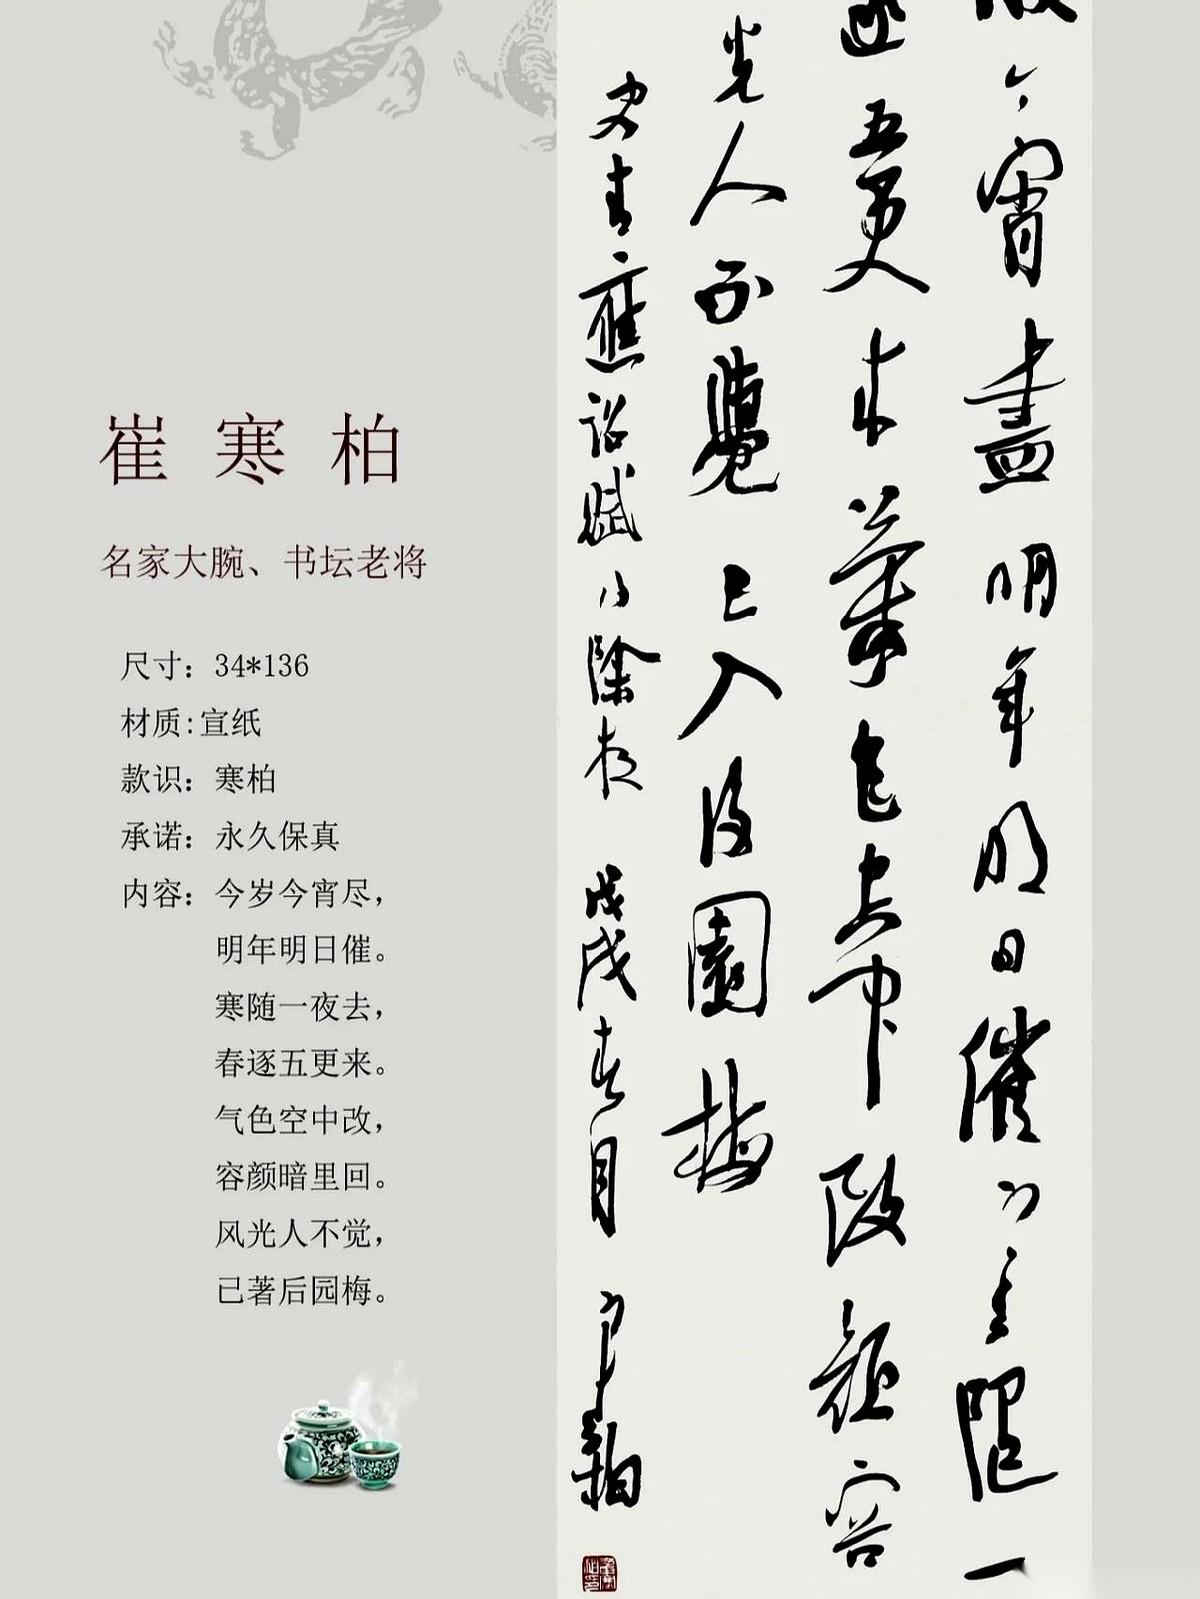 崔寒柏
名家大腕、书坛老将
尺寸：34*136
材质:宣纸
款识：寒柏
承诺：永久保真
内容：今岁今宵尽，
明年明日催。
寒随一夜去，
春逐五更来。
气色空中改，
容颜暗里回。
风光人不觉，
已著后园梅。
今宵盡明年明日催寒隨一
逐五更来氣色空中改顔容
光人不覺已入後園梅
史青應詔賦得除夜 戊戌春月 寒柏